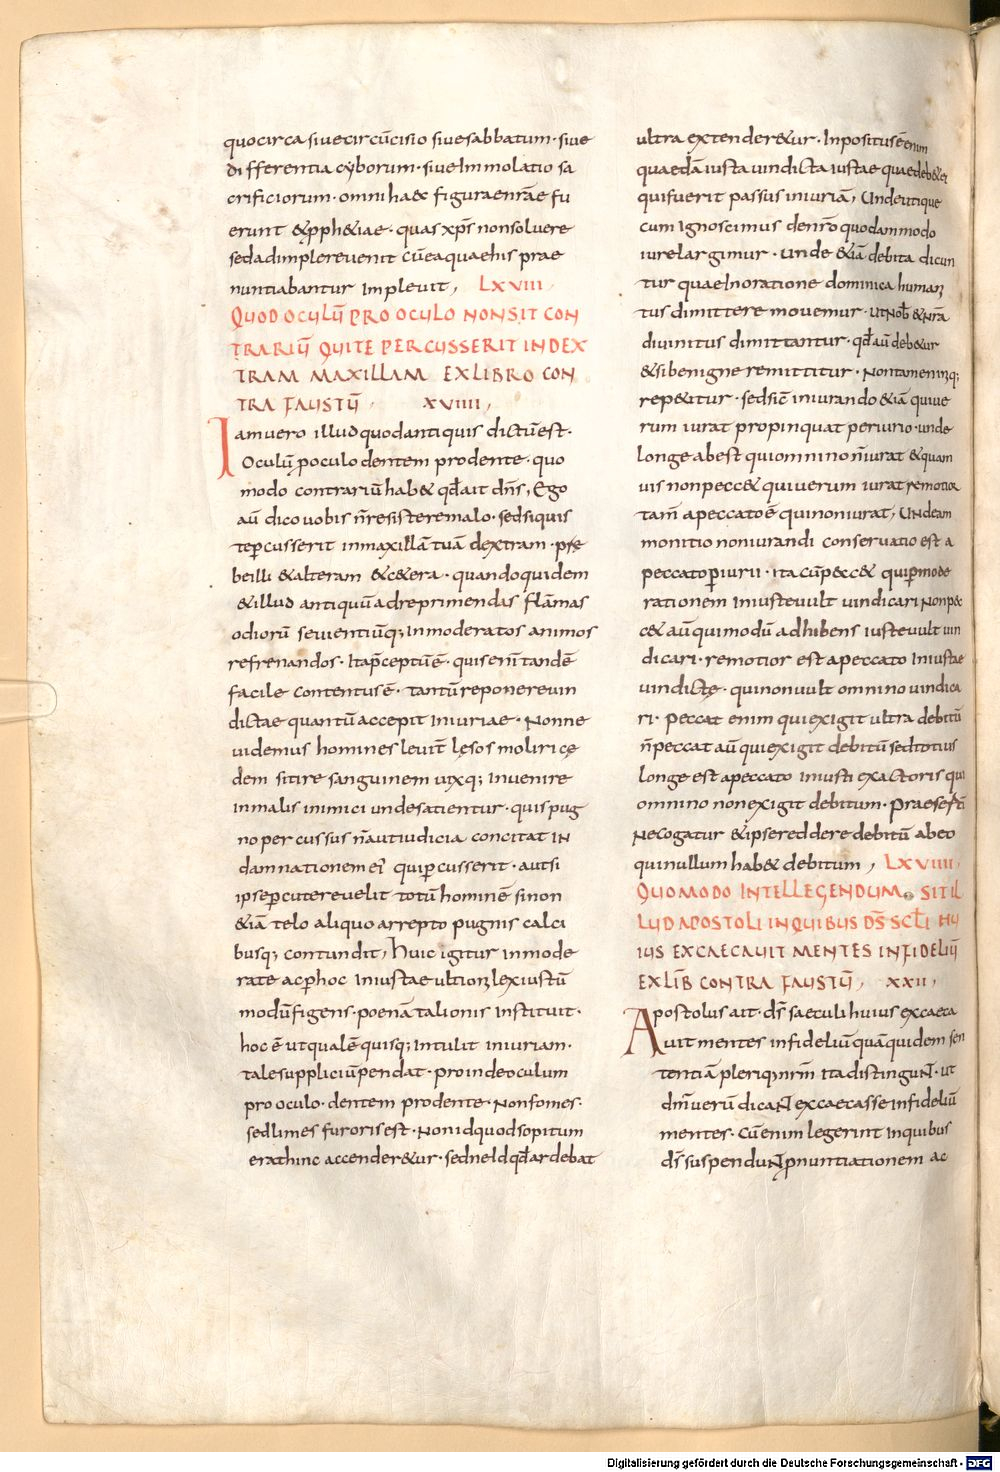 quocirca sive circūcisio sive sabbatum · sive
differentia cyborum · sive immolatio sa
crificiorum · omni haec figurae nr̄ae fu
erunt & pph&iae · quas xp̄s non solvere
sed adimplere venit cū ea quae his prae
nuntiabantur implevit, LXVIII
QUOD OCULŪ PRO OCULO NON SIT CON
TRARIŪ QUI TE PERCUSSERIT IN DEX
TRAM MAXILLAM EX LIBRO CON
TRA FAUSTŪ, XVIIII,
Iam vero illud quod antiquis dictū est ·
Oculū p oculo dentem pro dente · quo
modo contrariū hab& qđ ait dn̄s, Ego
aū dico vobis n̄ resistere malo · sed siquis
te p̄cusserit in maxillā tuā dextram · pre
be illi & alteram & c&era · quandoquidem
& illud antiquū ad reprimendas flāmas
odiorū sevientiūq; inmoderatos animos
refrenandos · Ita p̄ceptū ē · quis eni tandē
facile contentus ē · tantū reponere vin
dictae quantū accepit iniuriae · Nonne
videmus homines levit̄ lęsos moliri cę
dem sitire sanguinem vixq; invenire
in malis inimici unde satientur · quis pug
no percussus n̄ aut iudicia concitat in
damnationem ei qui p̄cusserit · aut si
ipse p̄cutere velit totū hominē si non
&iā telo aliquo arrepto pugnis calci
busq; contundit, Huic igitur inmode
rate ac p̄ hoc iniustae ultioni lex iustū
modū figens · poenā talionis instituit ·
hoc ē ut qualē quisq; intulit iniuriam ·
tale suppliciū pendat · proinde oculum
pro oculo · dentem pro dente · Non fomes ·
sed limes furoris est · Non id quod sopitum
erat hinc accender&ur · sed ne id qđ ardebat
ultra extender&ur · Inposit us ē enim
quaedā iusta vindicta iustae quae deb&ei
qui fuerit passus iniuriā, Unde utique
cum ignoscimus de nr̄o quodammodo
iure largimur · unde &iā debita dicun
tur quae in oratione dominica humani
tus dimittere movemur · ut nob̄ & nr̄a
divinitus dimittantur · qđ aū deb&ur
& si benigne remittitur · Non tamen iniq;
rep&itur · sed sic in iurando &iā qui ve
rum iurat propinquat periurio · unde
longe abest qui omnino n̄ iurat & quam
vis non pecc& qui verum iurat remotior
tam̄ a peccato ē qui non iurat, Unde am
monitio non iurandi conservatio est a
peccato p̄iurii · ita cū pecc& qui p̄mode
rationem iniuste vult vindicari Non pec
c& aū qui modū adhibens iuste vult vin
dicari · remotior est a peccato iniustae
vindictę · qui non vult omnino vindica
ri · peccat enim qui exigit ultra debitū
n̄ peccat aū qui exigit debitū sed totius
longe est a peccato iniusti exactoris qui
omnino non exigit debitum · praesertī
Ne cogatur & ipse reddere debitū ab eo
qui nullum hab& debitum, LXVIIII,
QUOMODO INTELLEGENDUM SIT IL
LUD APOSTOLI IN QUIBUS DS̄ SCL̄I HU
IUS EXCAECAVIT MENTES INFIDELIŪ
EX LIB̄ CONTRA FAUSTŪ, XXII,
Apostolus ait · ds̄ saeculi huius excaeca
vit mentes infideliū quā quidem sen
tentiā pleriq; nr̄m ita distingunt · ut
dm̄ verū dicant excaecasse infideliū
mentes · Cū enim legerint in quibus
ds̄ suspendunt p̄nuntiationem ac
Digitalisierung gefördert durch die Deutsche Forschungsgemeinschaft - DFG